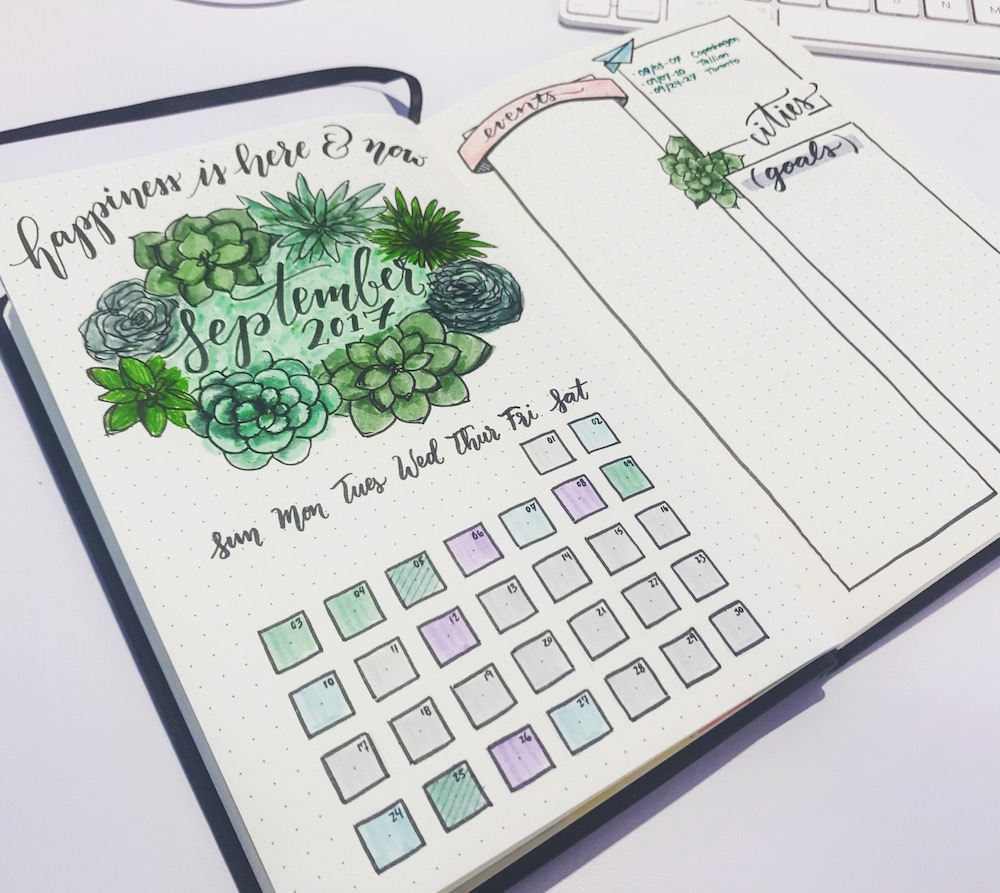 happiness is here & now
September
2017
Sun Mon Tues Wed Thur Fri Sat
01 02
03 04 05 06 07 08 09
10 11 12 13 14 15 16
17 18 19 20 21 22 23
24 25 26 27 28 29 30
events
· 09/03-07 Copenhagen
· 09/07-10 Tallinn
· 09/24-27 Toronto
cities
(goals)
N M